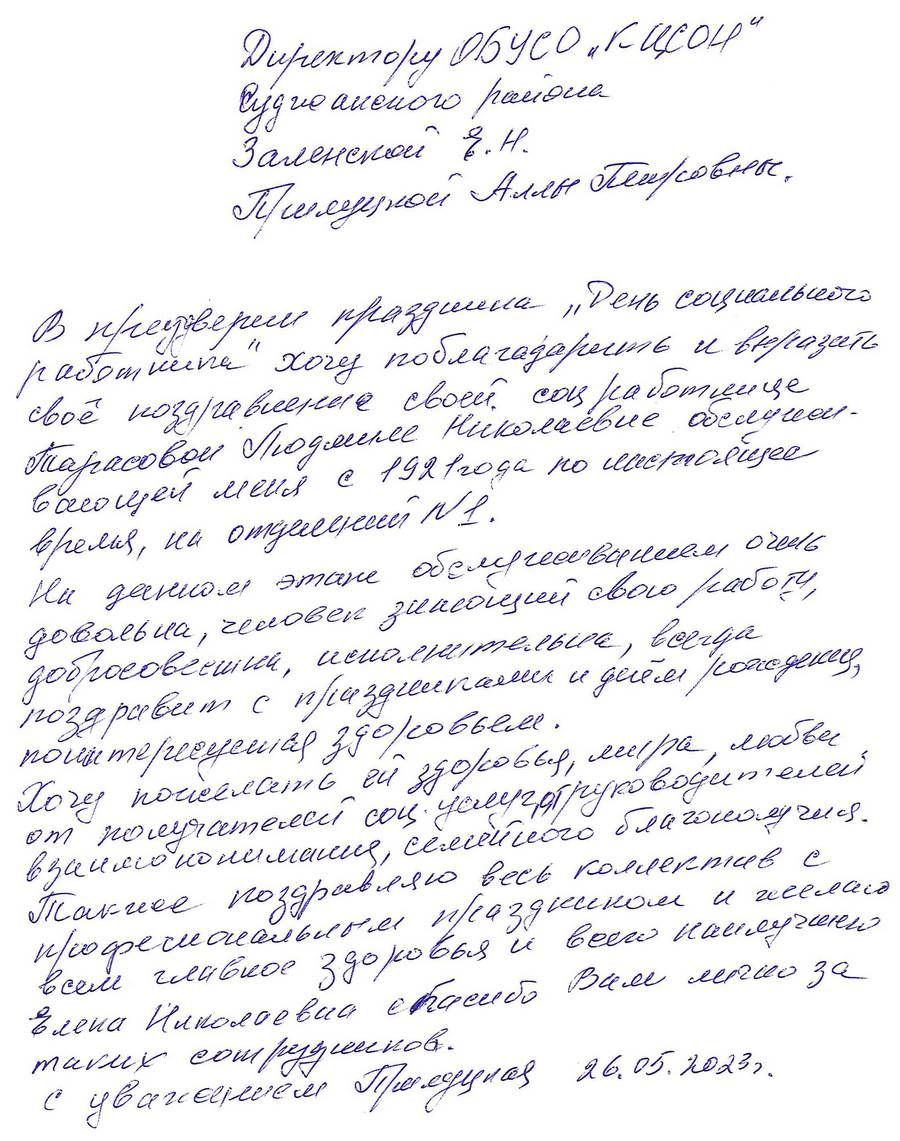 Директору ОБУСО "КЦСОН"
Суджанского района
Заленской Е.Н.
Прилуцкой Аллы Петровны.
В преддверии праздника "День социального
работника" хочу поблагодарить и выразить
своё поздравление своей соцработнице
Тарасовой Людмиле Николаевне обслужи-
вающей меня с 1921 года по настоящее
время, на отделений №1.
На данном этапе обслуживанием очень
довольна, человек знающий свою работу,
добросовестна, исполнительна, всегда
поздравит с праздниками и днём рождения,
поинтересуется здоровьем.
Хочу пожелать ей здоровья, мира, любви
от получателей соц. услуг, от руководителей
взаимопонимания, семейного благополучия.
Также поздравляю весь коллектив с
професиональным праздником и желаю
всем главное здоровья и всего наилучшего
Елена Николаевна спасибо Вам лично за
таких сотрудников.
с уважением Прилуцкая 26.05.2023г.